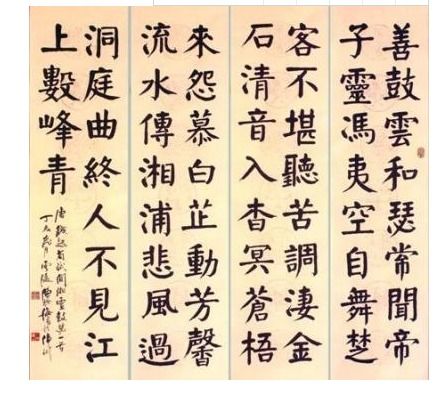 善鼓雲和瑟常聞帝
子靈馮夷空自舞楚
客不堪聽苦調淒金
石清音入杳冥蒼梧
來怨慕白芷動芳馨
流水傳湘浦悲風過
洞庭曲終人不見江
上數峰青
唐錢起省試湘靈鼓瑟一首